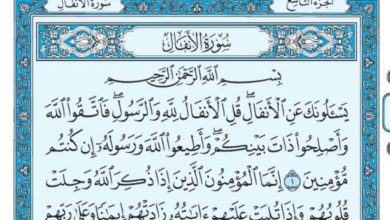 سُورَةُ الأَنفَالِ
الجُزْءُ التَّاسِعُ
سُورَةُ الأَنفَالِ
بِسْمِ اللَّهِ الرَّحْمَٰنِ الرَّحِيمِ
يَسْـَٔلُونَكَ عَنِ ٱلْأَنفَالِ ۖ قُلِ ٱلْأَنفَالُ لِلَّهِ وَٱلرَّسُولِ ۖ فَٱتَّقُوا۟ ٱللَّهَ
وَأَصْلِحُوا۟ ذَاتَ بَيْنِكُمْ ۖ وَأَطِيعُوا۟ ٱللَّهَ وَرَسُولَهُۥٓ إِن كُنتُم
مُّؤْمِنِينَ ١ إِنَّمَا ٱلْمُؤْمِنُونَ ٱلَّذِينَ إِذَا ذُكِرَ ٱللَّهُ وَجِلَتْ
قُلُوبُهُمْ وَإِذَا تُلِيَتْ عَلَيْهِمْ ءَايَٰتُهُۥ زَادَتْهُمْ إِيمَٰنًا وَعَلَىٰ رَبِّهِمْ